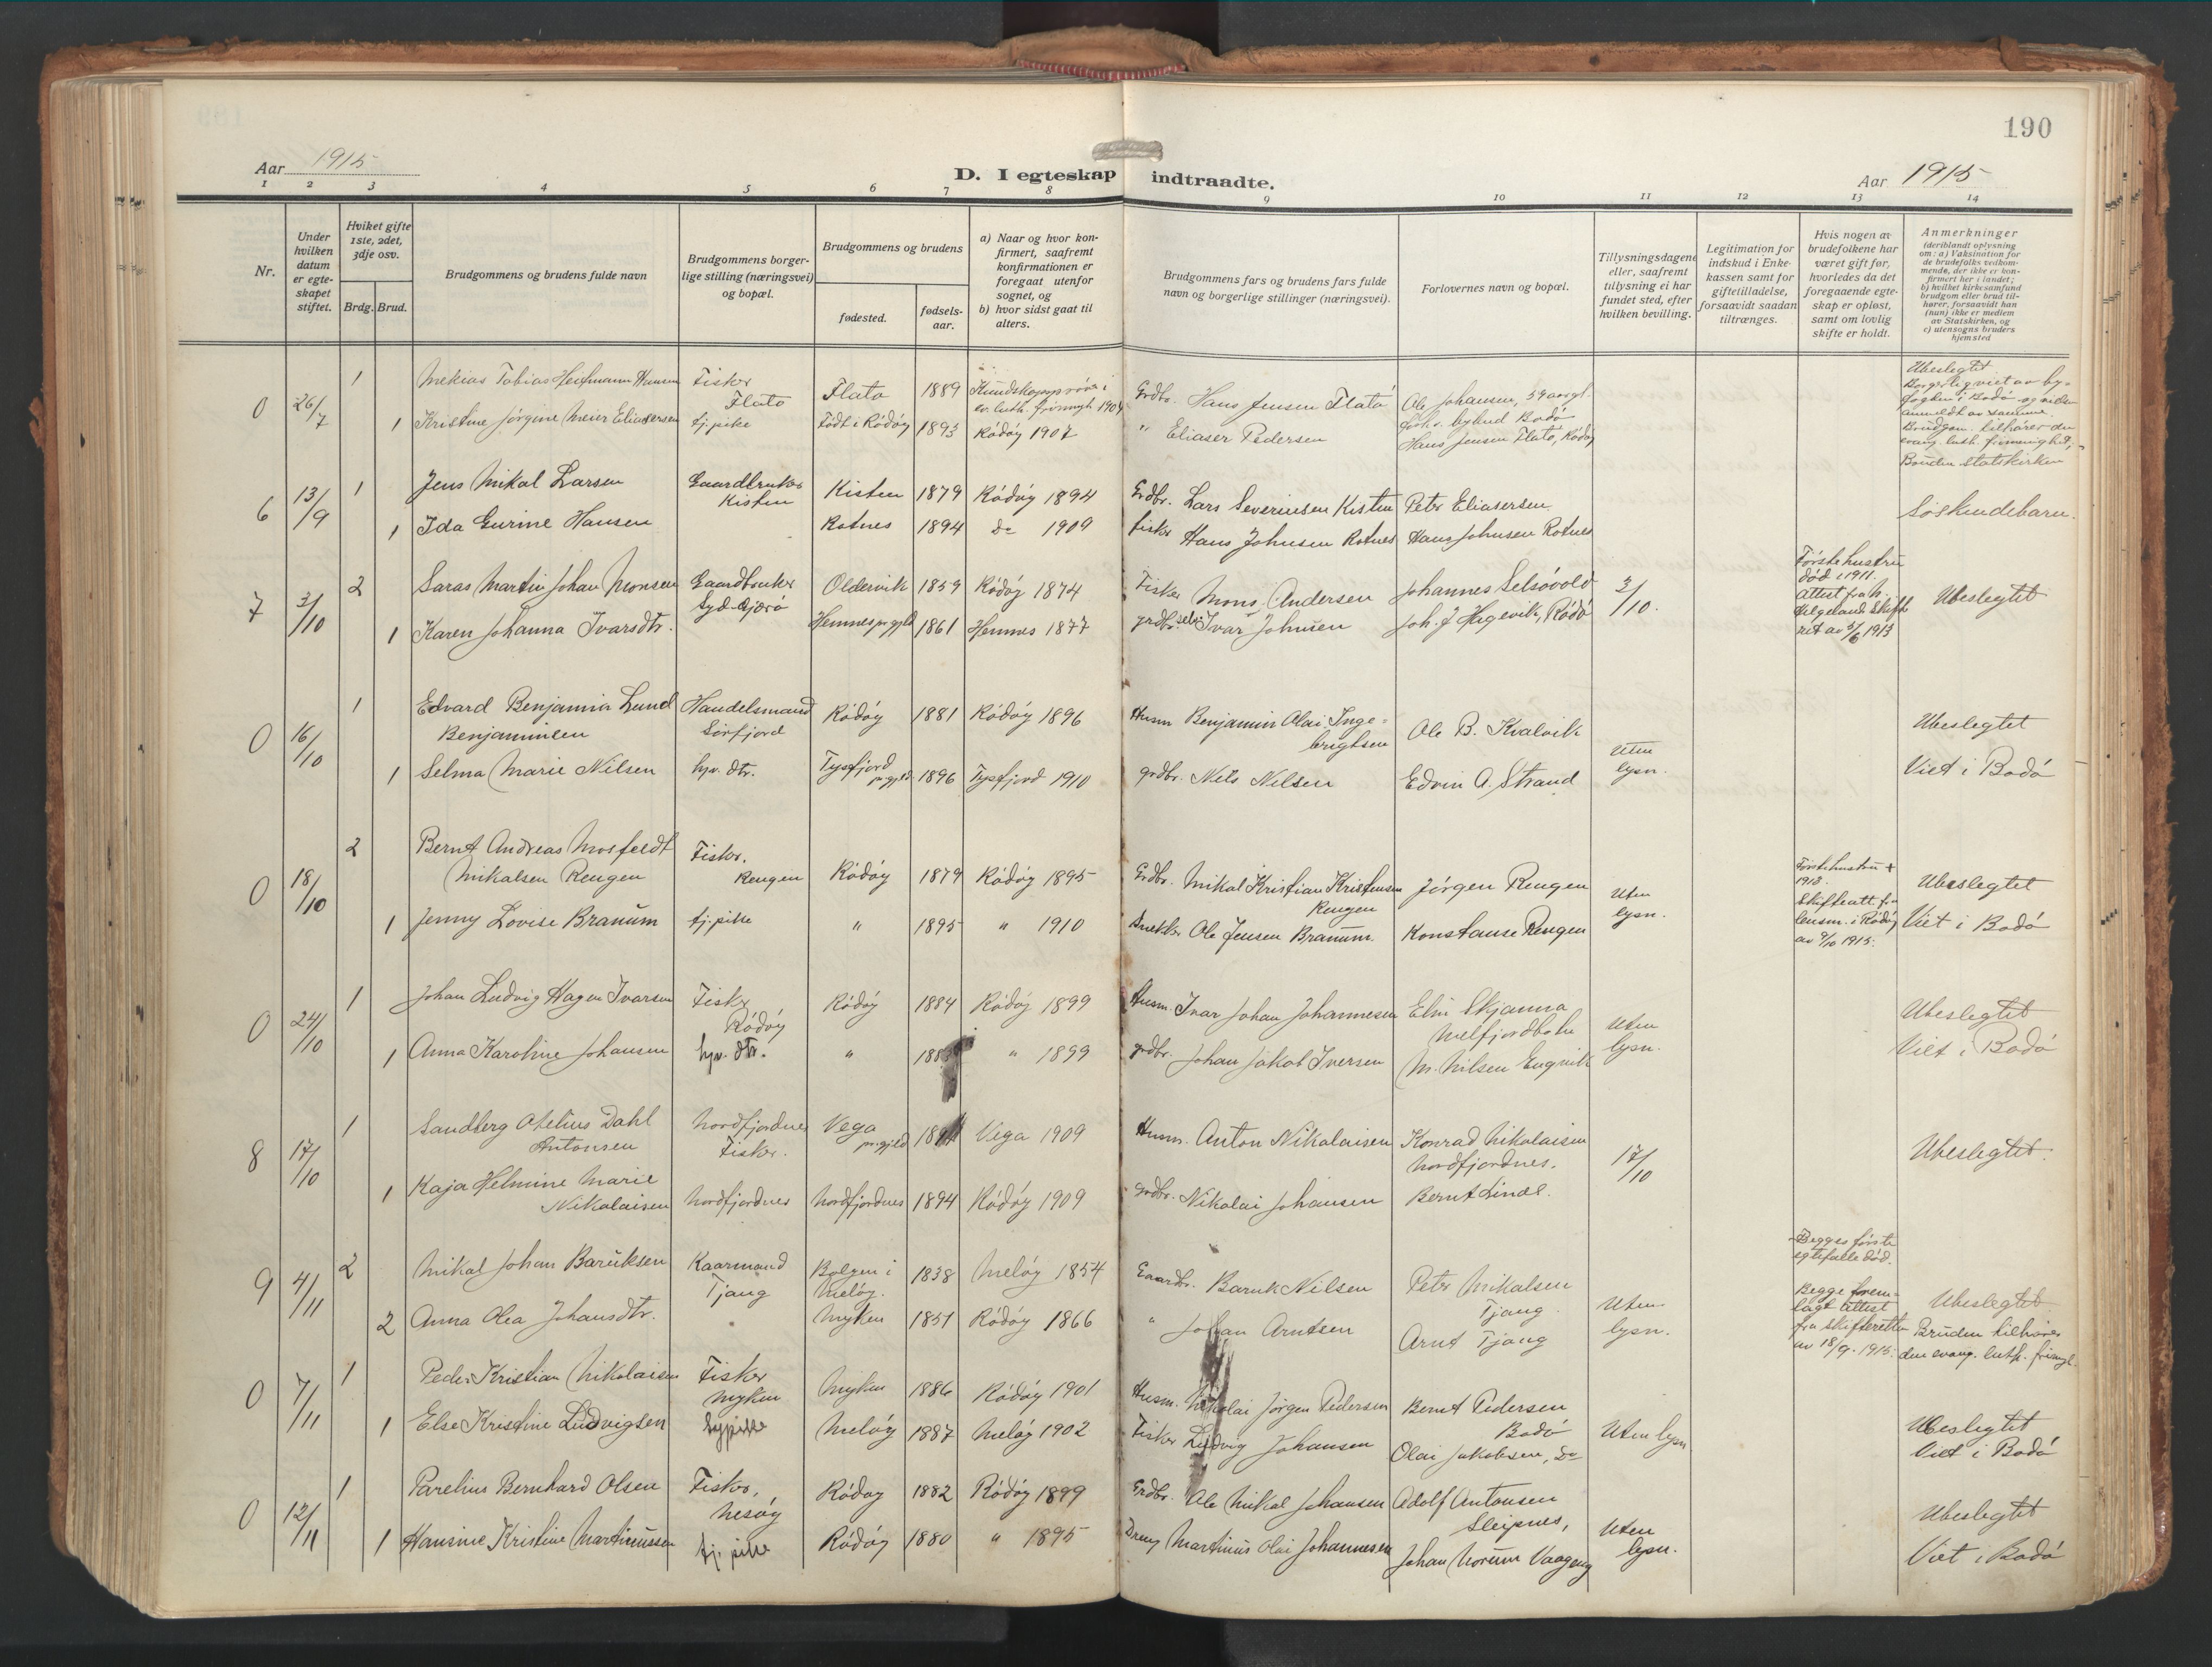 190
Aar 1915
D. I egteskap indtraadte.
Aar 1915
1 2 3 4 5 6 7 8 9 10 11 12 13 14
Nr.
Under hvilken datum er egte-skapet stiftet.
Hviket gifte 1ste, 2det, 3dje osv.
Brdg. Brud.
Brudgommens og brudens fulde navn
Brudgommens borger-lige stilling (næringsvei) og bopæl.
Brudgommens og brudens
fødested.
fødsels-aar.
a) Naar og hvor kon-firmert, saafremt konfirmationen er foregaat utenfor sognet, og
b) hvor sidst gaat til alters.
Brudgommens fars og brudens fars fulde navn og borgerlige stillinger (næringsvei).
Forlovernes navn og bopæl.
Tillysningsdagene eller, saafremt tillysning ei har fundet sted, efter hvilken bevilling.
Legitimation for indskud i Enke-kassen samt for giftetilladelse, forsaavidt saadan tiltrænges.
Hvis nogen av brudefolkene har været gift før, hvorledes da det foregaaende egte-skap er opløst, samt om lovlig skifte er holdt.
Anmerkninger
(deriblandt oplysning om: a) Vaksination for de brudefolks vedkom-mende, der ikke er kon-firmert her i landet; b) hvilket kirkesamfund brudgom eller brud til-hører, forsaavidt han (hun) ikke er medlem av Statskirken, og c) utensogns bruders hjemsted
0 26/7 1 Mekias Tobias Hansen Fisker Flatø Flatø 1889 1904 Grdbr. Hans Jensen Flatø Ole Johansen, Bodø
Ubeslegtet
Borgerlig viet av by-
fogden i Bodø og
anmeldt av samme.
Brudgom. tilhører den
evang. luth. frimenighet,
Bruden statskirken
1 Kristine Jörgine Meier Eliassersen tj. pike Födt i Rödöy 1893 Rödöy 1907 " Eliaser Pedersen Hans Jensen Flatø, Rödöy
6 13/9 1 Jens Mikal Larsen Gaardbruker Kisten Kisten 1879 Rödöy 1894 Grdbr. Lars Severinsen Kisten Peter Eliasersen
Söskendebarn.
1 Ida Gurine Hansen Rotnes 1894 do 1909 fisker Hans Johnsen Rotnes Hans Johnsen Rotnes
7 3/10 2 Saras Martin Johan Monsen Gaardbruker Syd-Gjerö Oldervik 1859 Rödöy 1874 Fisker Mons Andersen Johannes Selsövold 3/10.
Første hustru
død i 1911.
Attest fra
Helgeland Skifte
ret av 3/6 1913
Ubeslegtet
1 Karen Johanna Ivarsdtr. Hemnes prgjld 1861 Hemnes 1877 grdbr. Ivar Johnsen Joh. J Hagevik, Rödö
0 16/10 1 Edvard Benjamin Lund Benjaminsen Handelsmand Sörfjord Rödöy 1881 Rödöy 1896 Husm Benjamin Olai Inge-brigtsen Ole B. Kvalvik Uten lysn.
Ubeslegtet
Viet i Bodö
1 Selma Marie Nilsen hjv. dtr. Tysfjord prgjeld 1896 Tysfjord 1910 grdbr. Nils Nilsen Edvin A. Strand
0 18/10 2 Bernt Andreas Mosfeldt Mikalsen Rengen Fisker. Rengen Rödöy 1879 Rödöy 1895 Grdbr. Mikal Kristian Kristensen Rengen Jörgen Rengen Uten lysn.
Første hustru +
1913.
Skifteatt. fra
lensm. i Rödöy
av 9/10 1915.
Ubeslegtet
Viet i Bodö
1 Jenny Lovise Branum tj. pike " 1895 " 1910 Snekker Ole Jensen Branum. Konstanse Rengen
0 24/10 1 Johan Ludvig Hagen Ivarsen Fisker Rödöy Rödöy 1884 Rödöy 1899 Husm. Ivar Johan Johannesen Elin Skjanna Melfjordbotn Uten lysn.
Ubeslegtet
Viet i Bodö
1 Anna Karoline Johansen hjv. dtr. " " 1899 grdbr. Johan Jakob Iversen M. Nilsen Engvik
8 17/10 1 Sandberg Otelius Dahl Antonsen Nordfjordnes Fisker. Vega prgjeld Vega 1909 Husm. Anton Nikolaisen Konrad Nikolaisen Nordfjordnes. 17/10
Ubeslegtet.
1 Kaja Helmine Marie Nikolaisen Nordfjordnes Nordfjordnes 1894 Rödöy 1909 grdbr. Nikolai Johansen Bernt Lind.
9 4/11 2 Mikal Johan Baruksen Kaarmand Tjang Bolgen i Melöy. 1838 Melöy 1854 Gaardbr. Baruk Nilsen Peter Mikalsen Tjang. Uten lysn.
Begges første
egtefalle död.
Begge frem-
lagt attest
fra skifteretten
av 18/9. 1915.
Ubeslegtet.
Bruden tilhører
den evang. luth. frimgh.
2 Anna Olea Johansdtr. Myken 1851 Rödöy 1866 " Johan Arntsen Arnt Tjang
0 7/11 1 Peder Kristian Nikolaisen Fisker Myken Myken 1886 Rödöy 1901 Husm. Nikolai Jörgen Pedersen Bernt Pedersen Bodö Uten lysn.
Ubeslegtet
Viet i Bodö
1 Else Kristine Ludvigsen Melöy 1887 Melöy 1902 Fisker Ludvig Johansen Olai Jakobsen, do
0 12/11 1 Parelius Bernhard Olsen Fisker, Nesöy Rödöy 1882 Rödöy 1899 Grdbr. Ole Mikal Johansen Adolf Antonsen Sleipnes, Uten lysn.
Ubeslegtet
Viet i Bodö
1 Hansine Kristine Martinussen tj. pike Rödöy 1880 " 1895 Martinus Olai Johannesen Johan Norum Vaageng